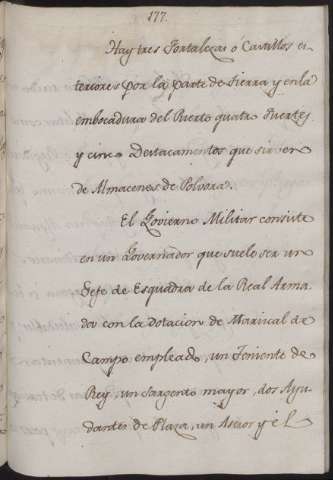 177.
Hay tres Fortalezas ó Castillos ex
teriores por la parte de tierra y en la
embocadura del Puerto quatro fuertes
y cinco Destacamentos que sirven
de Almacenes de Polvora.
El Govierno Militar consiste
en un Governador que suele ser un
Gefe de Esquadra de la Real Arma
da con la Dotacion de Mariscal de
Campo empleado, un Teniente de
Rey, un Sargento mayor, dos Ayu
dantes de Plaza, un Asesor y el